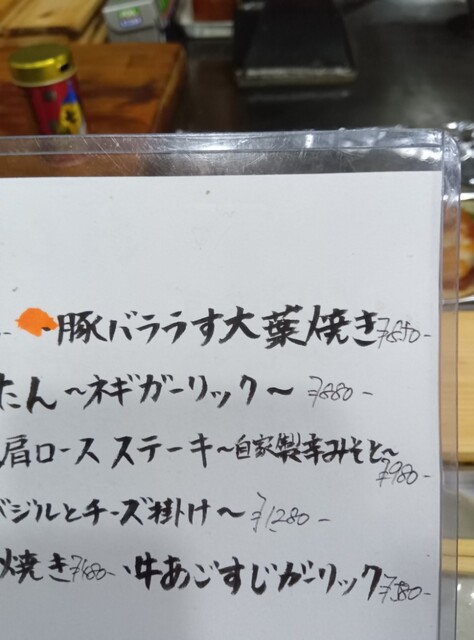 ・豚バラうす大葉焼き ¥550-
たん〜ネギガーリック〜 ¥880-
肩ロース ステーキ〜自家製辛みそと〜 ¥980-
バジルとチーズ掛け〜 ¥1280-
焼き ¥480- ・牛あごすじガーリック ¥580-